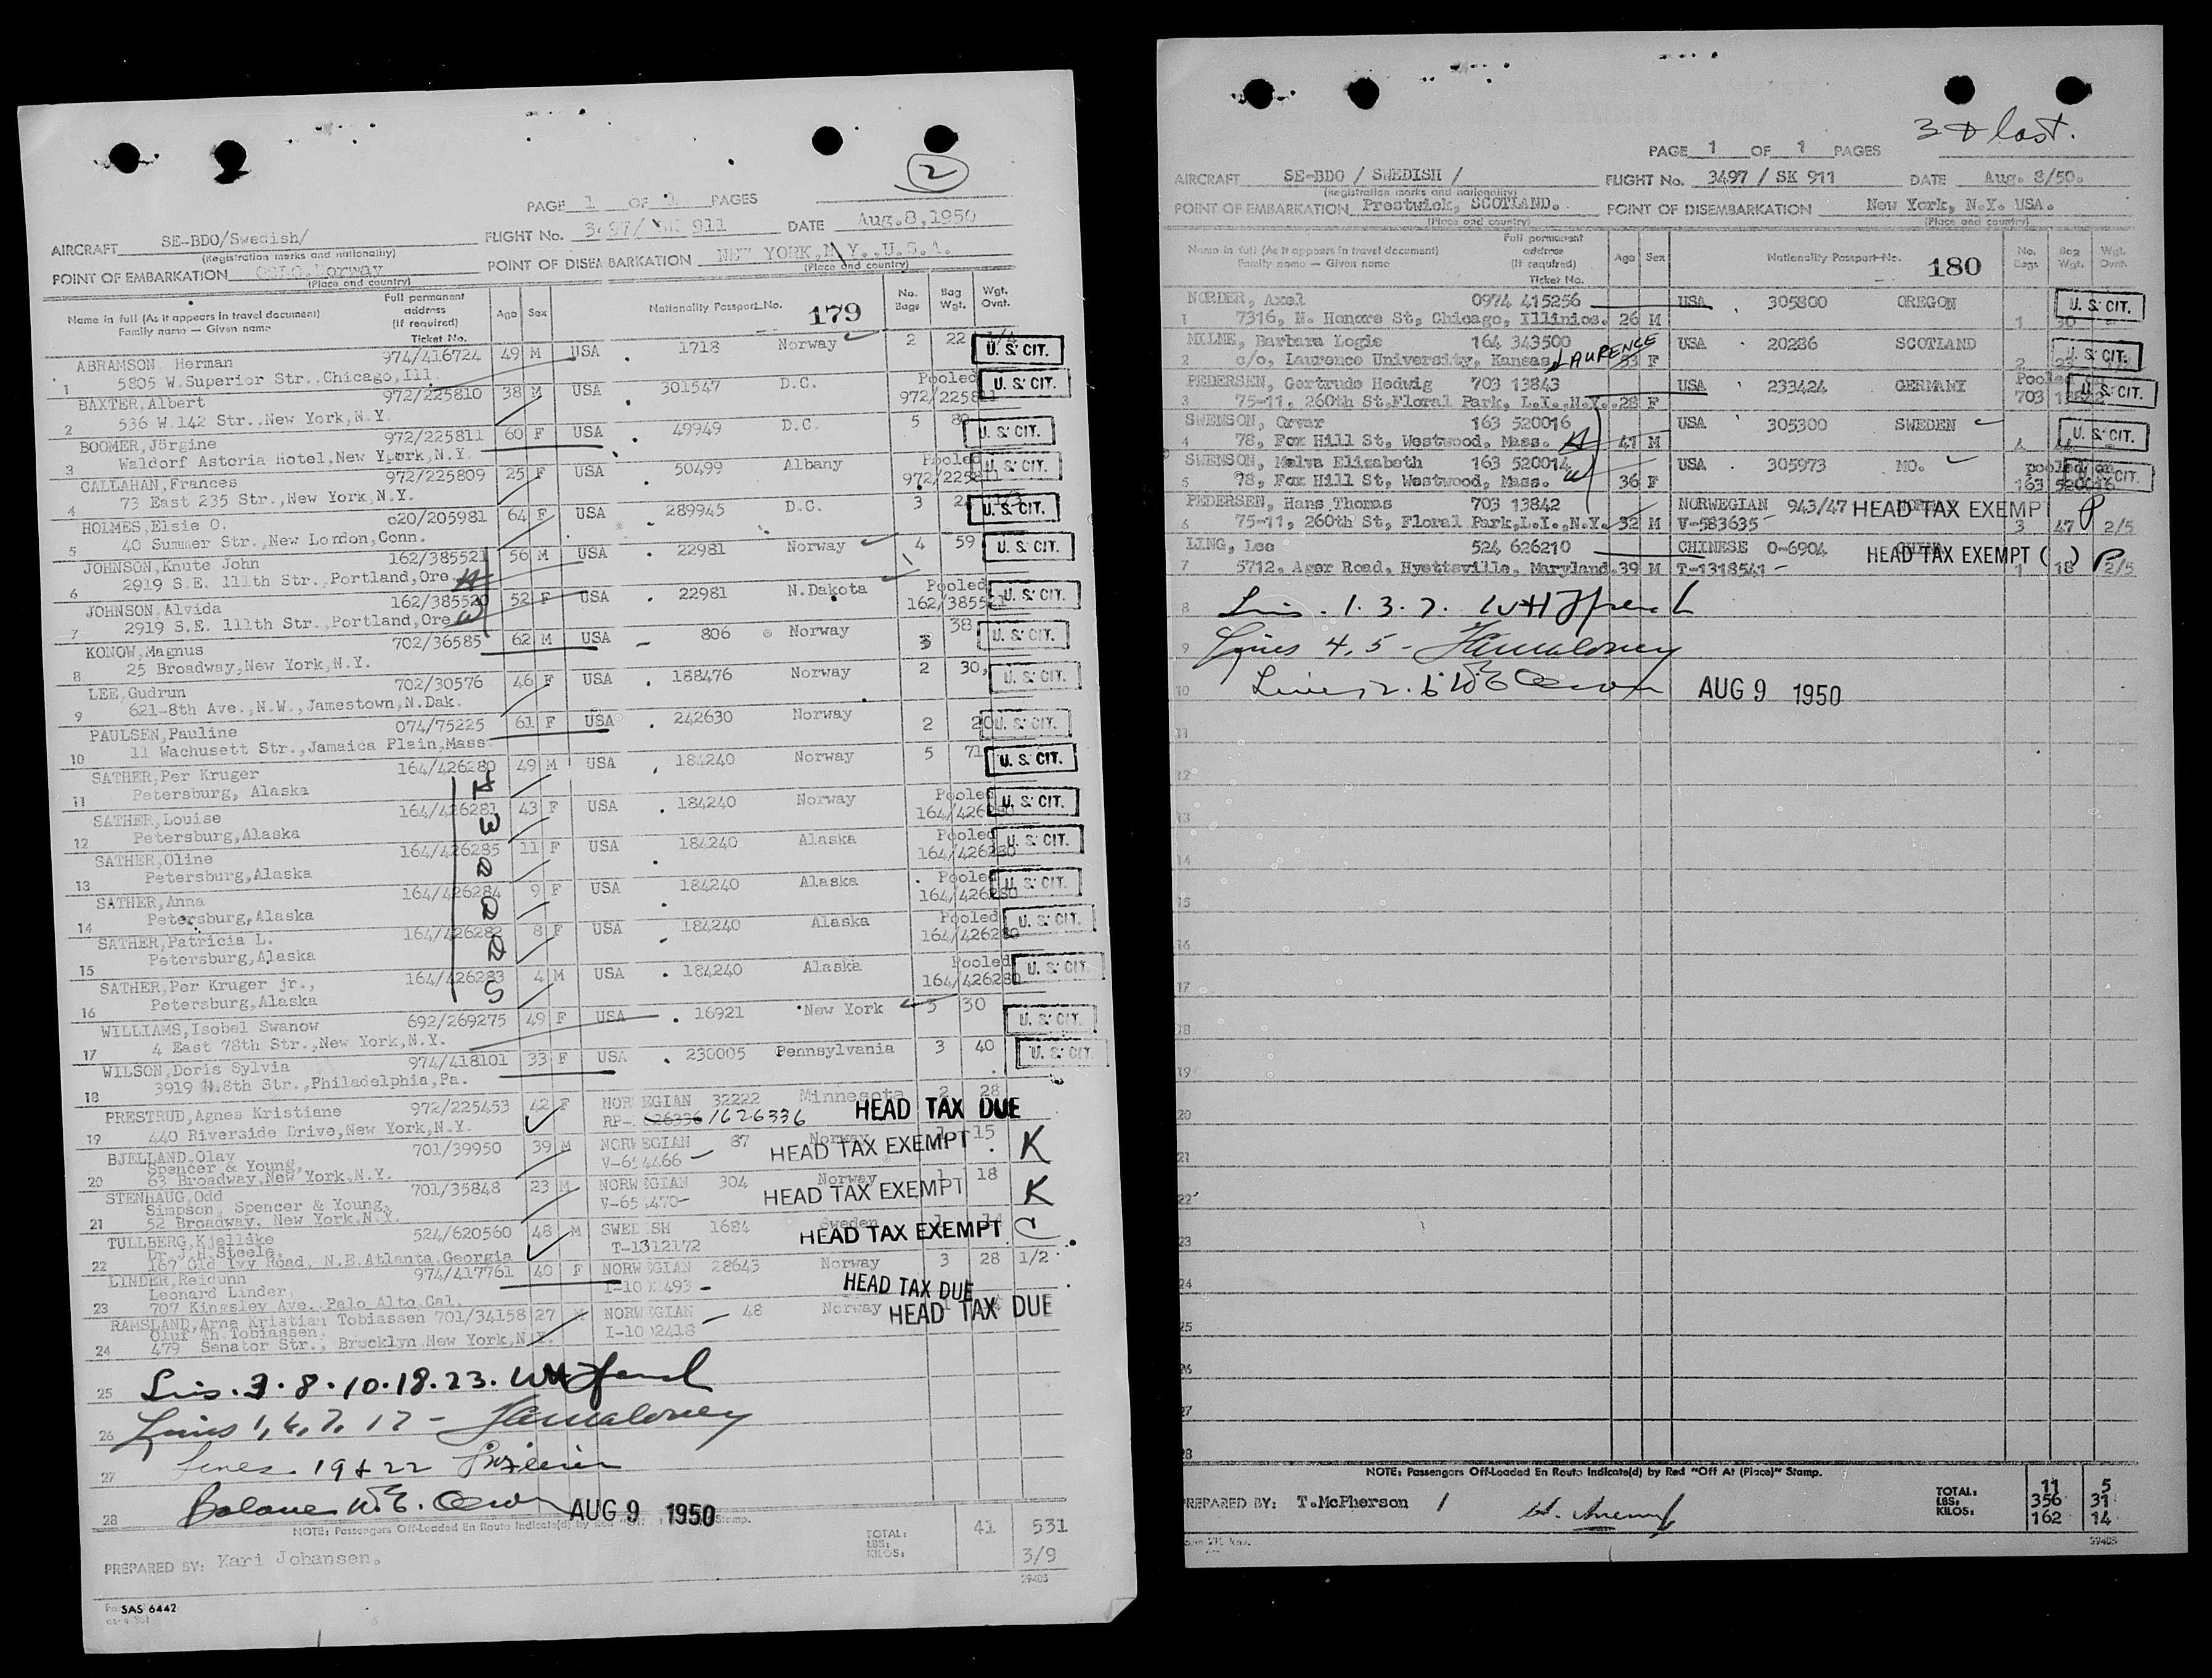 2
PAGE 1 OF 1 PAGES
AIRCRAFT SE-BDO/Swedish/ FLIGHT No. 3497/ SK 911 DATE Aug.8,1950
(Registration marks and nationality)
POINT OF EMBARKATION OSLO,Norway POINT OF DISEMBARKATION NEW YORK,N.Y.,U.S.A.
(Place and country) (Place and country)
Name in full (As it appears in travel document) Family name — Given name Full permanent address (If required) Ticket No. Age Sex Nationality Passport No. 179 No. Bags Bag Wgt. Wgt. Ovnt.
ABRAMSON, Herman 974/416724 49 M USA 1718 Norway 2 22 U. S. CIT.
1 5805 W.Superior Str.,Chicago,Ill.
BAXTER,Albert 972/225810 38 M USA 301547 D.C. Pooled U. S. CIT.
2 536 W.142 Str.,New York,N.Y. 972/225811
BOOMER,Jörgine 972/225811 60 F USA 49949 D.C. 5 80 U. S. CIT.
3 Waldorf Astoria Hotel,New Ypurk,N.Y.
CALLAHAN,Frances 972/225809 25 F USA 50499 Albany Pooled U. S. CIT.
4 73 East 235 Str.,New York,N.Y. 972/225811
HOLMES,Elsie O. 020/205981 64 F USA 289945 D.C. 3 U. S. CIT.
5 40 Summer Str.,New Lordon,Conn.
JOHNSON,Knute John 162/385521 56 M USA 22981 Norway 4 59 U. S. CIT.
6 2919 S.E. 111th Str.,Portland,Ore H
JOHNSON,Alvida 162/385520 52 F USA 22981 N.Dakota Pooled U. S. CIT.
7 2919 S.E. 111th Str.,Portland,Ore W 162/385521
KONOW,Magnus 702/36585 62 M USA 806 Norway 3 38 U. S. CIT.
8 25 Broadway,New York,N.Y.
LEE,Gudrun 702/30576 46 F USA 188476 Norway 2 30 U. S. CIT.
9 621-8th Ave.,N.W.,Jamestown,N.Dak.
PAULSEN,Pauline 074/75225 61 F USA 242630 Norway 2 20 U. S. CIT.
10 11 Wachusett Str.,Jamaica Plain,Mass.
SATHER,Per Kruger 164/426280 49 M USA 184240 Norway 5 71 U. S. CIT.
11 Petersburg, Alaska H
SATHER,Louise 164/426281 43 F USA 184240 Norway Pooled U. S. CIT.
12 Petersburg,Alaska W 164/426280
SATHER,Oline 164/426285 11 F USA 184240 Alaska Pooled U. S. CIT.
13 Petersburg,Alaska D 164/426280
SATHER,Anna 164/426284 9 F USA 184240 Alaska Pooled U. S. CIT.
14 Petersburg,Alaska D 164/426280
SATHER,Patricia L. 164/426282 8 F USA 184240 Alaska Pooled U. S. CIT.
15 Petersburg,Alaska D 164/426280
SATHER,Per Kruger jr., 164/426283 4 M USA 184240 Alaska Pooled U. S. CIT.
16 Petersburg,Alaska S 164/426280
WILLIAMS,Isobel Swanow 692/269275 49 F USA 16921 New York 3 30 U. S. CIT.
17 4 East 78th Str.,New York,N.Y.
WILSON,Doris Sylvia 974/418101 33 F USA 230005 Pennsylvania 3 40 U. S. CIT.
18 3919 N.8th Str.,Philadelphia,Pa.
PRESTRUD,Agnes Kristiane 972/225453 42 F NORWEGIAN 32222 Minnesota 2 28
19 440 Riverside Drive,New York,N.Y. RP- 626336 /626336 HEAD TAX DUE
BJELLAND,Olav 701/39950 39 M NORWEGIAN 87 Norway 15
Spencer & Young, HEAD TAX EXEMPT K
20 63 Broadway,New York,N.Y.
STENHAUG,Odd 701/35848 23 M NORWEGIAN 304 Norway 1 18
Simpson, Spencer & Young, HEAD TAX EXEMPT K
21 52 Broadway, New York,N.Y.
TULLBERG,Kjellåke 524/620560 48 M SWEDISH 1684 Sweden
Dr.J.H.Steele, T-1312172 HEAD TAX EXEMPT C
22 167 Old Ivy Road, N.E.Atlanta,Georgia
LINDER,Reidunn 974/417761 40 F NORWEGIAN 28643 Norway 3 28 1/2
Leonard Linder, HEAD TAX DUE
23 707 Kingsley Ave.,Palo Alto,Cal.
RAMSLAND,Arne Kristian Tobiassen 701/34158 27 M NORWEGIAN 48 Norway HEAD TAX DUE
Oluf Th.Tobiassen,
24 479 Senator Str., Brooklyn New York,N.Y.
25 Lins. 3. 8. 10. 18. 23.
26 Lines 1, 6, 7, 17 -
27 Lines 19 + 22
28 Balance AUG 9 1950
NOTE: Passengers Off-Loaded En Route Indicate(d) by Red Stamp.
TOTAL: LBS: KILOS: 41 531
3/9
PREPARED BY: Kari Johansen.
29403
SAS 6442
3 & last.
PAGE 1 OF 1 PAGES
AIRCRAFT SE-BDO / SWEDISH / FLIGHT No. 3497 / SK 911 DATE Aug. 8/50.
(Registration marks and nationality)
POINT OF EMBARKATION Prestwick, SCOTLAND. POINT OF DISEMBARKATION New York, N.Y. USA.
(Place and country) (Place and country)
Name in full (As it appears in travel document) Family name — Given name Full permanent address (If required) Ticket No. Age Sex Nationality Passport No. 180 No. Bags Bag Wgt. Wgt. Ovnt.
NORDER, Axel 0974 415256 USA 305800 OREGON U. S. CIT.
1 7316, N. Honore St, Chicago, Illinios. 26 M 1 30
MILNE, Barbara Logie 164 343500 USA 20286 SCOTLAND U. S. CIT.
2 c/o, Laurence University, Kansas, LAURENCE 53 F 2
PEDERSEN, Gertrude Hedwig 703 13843 USA 233424 GERMANY Pooled on U. S. CIT.
3 75-11, 260th St,Floral Park, L.I.,N.Y. 28 F 703 13842
SWENSON, Orvar 163 520016 USA 305300 SWEDEN U. S. CIT.
4 78, Fox Hill St, Westwood, Mass. H 41 M
SWENSON, Melva Elizabeth 163 520014 USA 305973 MO. pooled on U. S. CIT.
5 78, Fox Hill St, Westwood, Mass. W 36 F 163 520016
PEDERSEN, Hans Thomas 703 13842 NORWEGIAN 943/47 HEAD TAX EXEMP P
6 75-11, 260th St, Floral Park,L.I.,N.Y. 32 M V-583635 3 47 2/5
LING, Lee 524 626210 CHINESE 0-6904 CHINA HEAD TAX EXEMPT ( ) P
7 5712, Ager Road, Hyattsville, Maryland. 39 M T-1318541 1 18 2/5
8 Lins. 1. 3. 7.
9 Lines 4, 5 -
10 Lines 2. 6 AUG 9 1950
11
12
13
14
15
16
17
18
19
20
21
22
23
24
25
26
27
28
NOTE: Passengers Off-Loaded En Route Indicate(d) by Red "Off At (Place)" Stamp.
PREPARED BY: T.McPherson /
TOTAL: 11 5
LBS: 356 31
KILOS: 162 14
29403